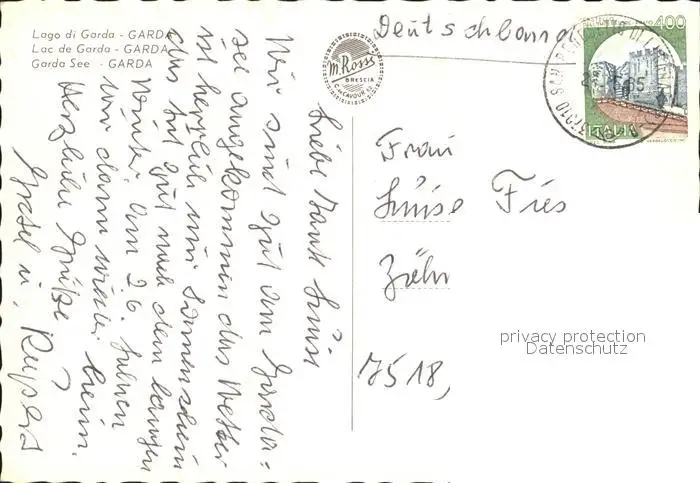 Lago di Garda - GARDA
Lac de Garda - GARDA
Garda See - GARDA
M. Rossi
BRESCIA
C. CAVOUR 52
Deutschland
400
ITALIA
37010 SAN
85
Liebe Tante Luise
Wir sind gut am Garda=
see angekommen das Wetter
ist herrlich nur Sonnenschein
das tut gut nach dem langen
Winter. Am 26. fahren
wir dann wieder heim.
Herzliche Grüße
Gretel u. Rupert
Frau
Luise Fies
7518,
privacy protection
Datenschutz